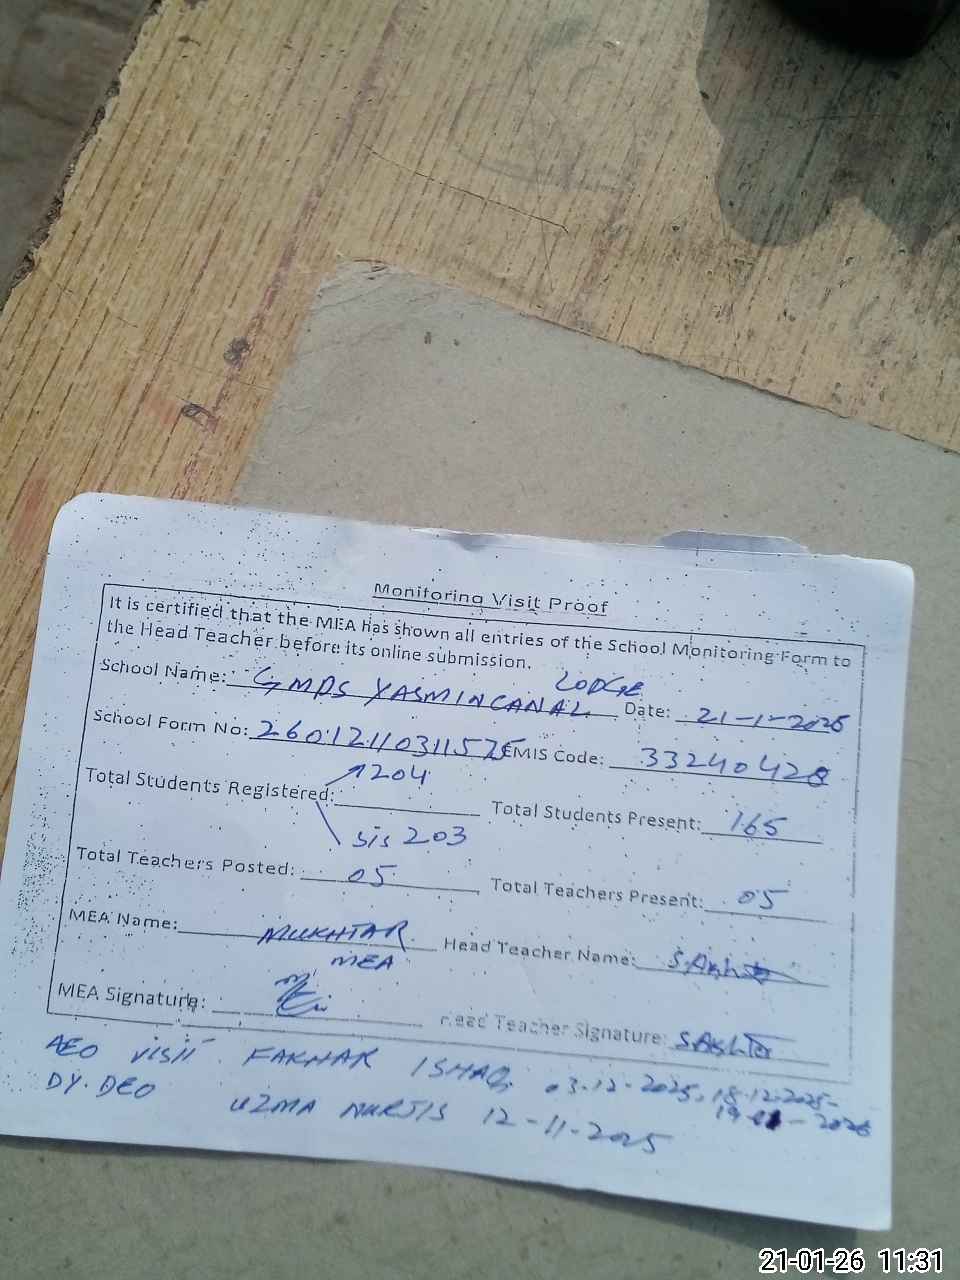 Monitoring Visit Proof
It is certified that the MEA has shown all entries of the School Monitoring Form to
the Head Teacher before its online submission.
School Name: GMPS YASMIN CANAL LODGE Date: 21-1-2026
School Form No: EMIS Code: 33240428
Total Students Registered: 204 Total Students Present: 165
SIS 203
Total Teachers Posted: 05 Total Teachers Present: 05
MEA Name: MUKHTAR Head Teacher Name:
MEA
MEA Signature: Head Teacher Signature:
AEO visit FAKHAR ISHAQ 03-12-2025, 18-12-2025-
19-01-2026
DY. DEO UZMA 12-11-2025
21-01-26 11:31